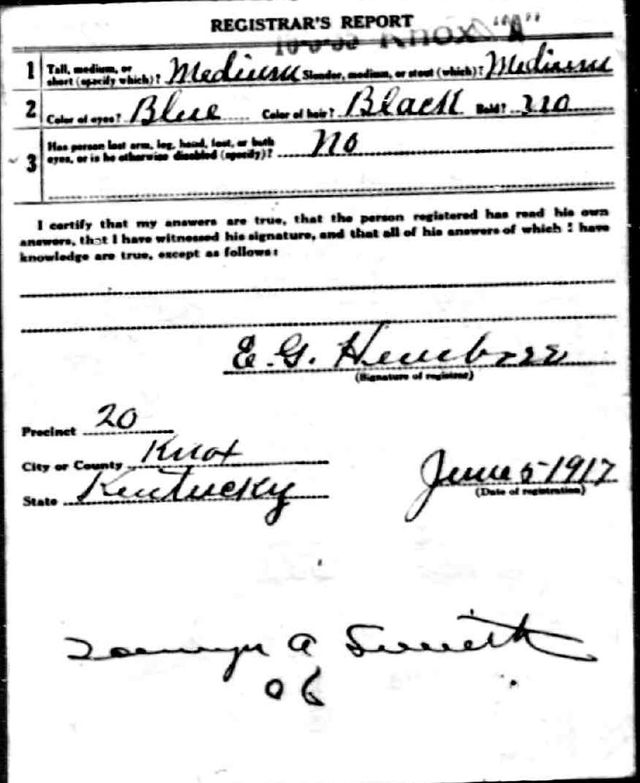 REGISTRAR'S REPORT
Knox "A"
1 Tall, medium, or short (specify which)? Medium Slender, medium, or stout (which)? Medium
2 Color of eyes? Blue Color of hair? Black Bald? no
3 Has person lost arm, leg, hand, foot, or both
eyes, or is he otherwise disabled (specify)? no
I certify that my answers are true, that the person registered has read his own
answers, that I have witnessed his signature, and that all of his answers of which I have
knowledge are true, except as follows:
E. G.
(Signature of registrar)
Precinct 20
City or County Knox
State Kentucky
June 5 1917
(Date of registration)
A Smith
06